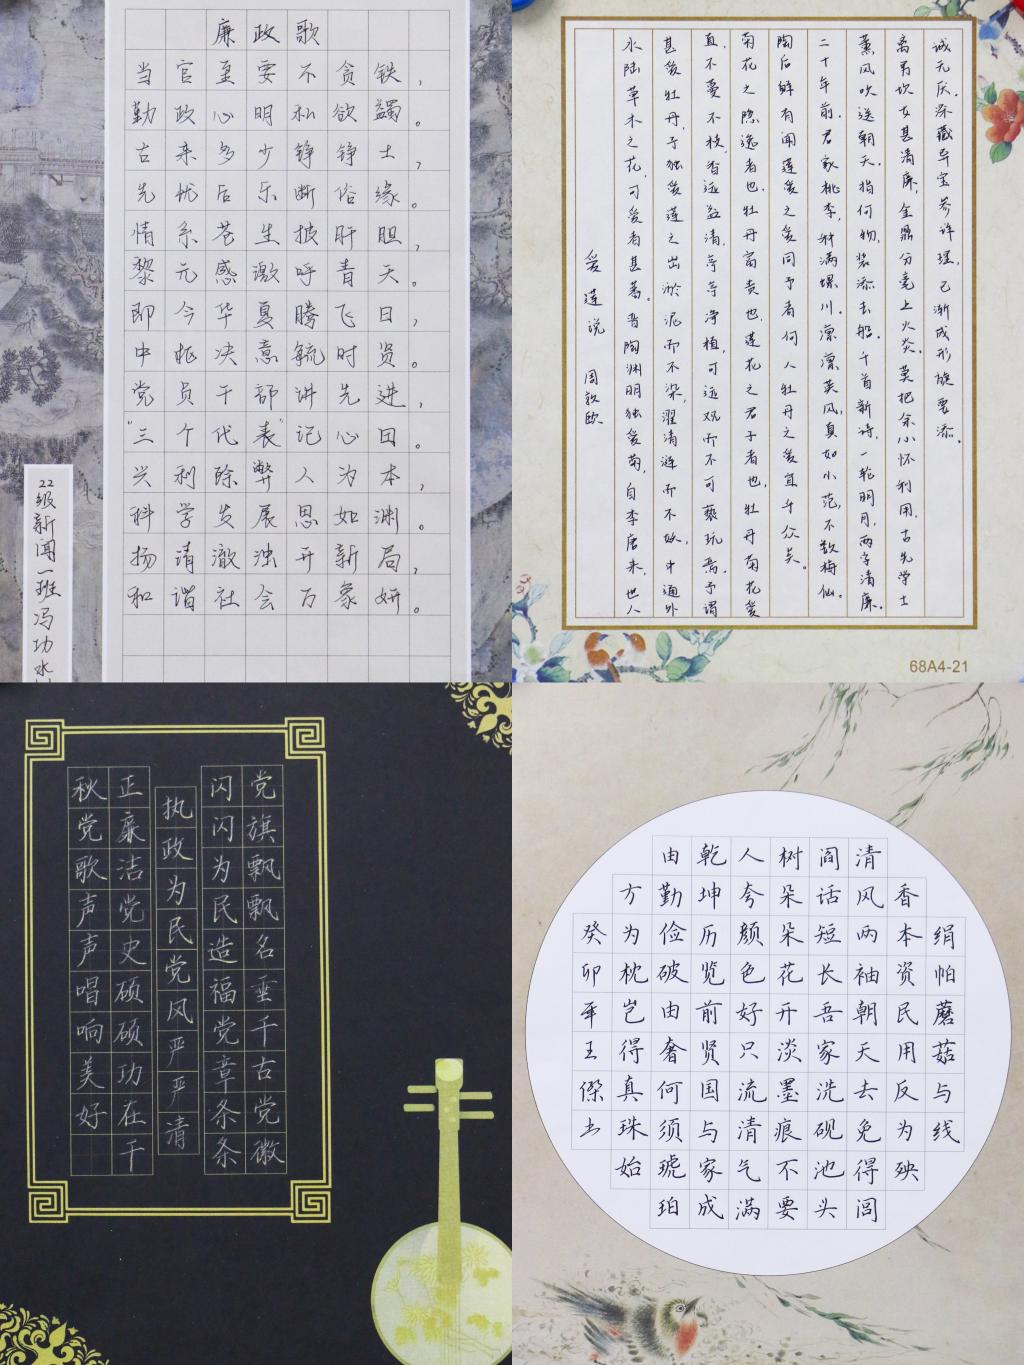 廉政歌
当官至要不贪铁，
勤政心明私欲蠲。
古来多少铮铮士，
先忧后乐断俗缘。
情系苍生披肝胆，
黎元感激呼青天。
即今华夏腾飞日，
中枢决意毓时贤。
党员干部讲先进，
“三个代表”记心田。
兴利除弊人为本，
科学发展思如渊。
扬清激浊开新局，
和谐社会万象妍。
22级新闻一班冯功水
爱莲说 周敦颐
水陆草木之花,可爱者甚蕃。晋陶渊明独爱菊,自李唐来,世人
甚爱牡丹,予独爱莲之出淤泥而不染,濯清涟而不妖.中通外
直.不蔓不枝.香远益清,亭亭净植,可远观而不可亵玩焉.予谓
菊花之隐逸者也.牡丹富贵也.莲花之君子者也,牡丹菊花爱
陶后鲜有闻莲爱之爱同予者何人牡丹之爱宜乎众矣。
二十年前.君家桃李,斜满螺川.凛凛英风,真如小范,不数梅仙。
薰风吹送朝天.指何物,装添去船.千首新诗,一轮明月,两字清廉.
离男坎女甚清廉,金鼎分毫上火炎.莫把余小怀利用.古先学士
诚元厌.琛藏异宝.参许理,已渐成形旋要添。
68A4-21
党旗飘飘名垂千古党徽
闪闪为民造福党章条条
执政为民党风严严清
正廉洁党史硕硕功在千
秋党歌声声唱响美好
绢帕蘑菇与线
香本资民用反为殃
清风两袖朝天去免得闾
阎话短长吾家洗砚池头
树朵朵花开淡墨痕不要
人夸颜色好只流清气满
乾坤历览前贤国与家成
由勤俭破由奢何须琥珀
方为枕岂得真珠始
癸卯年王傑书